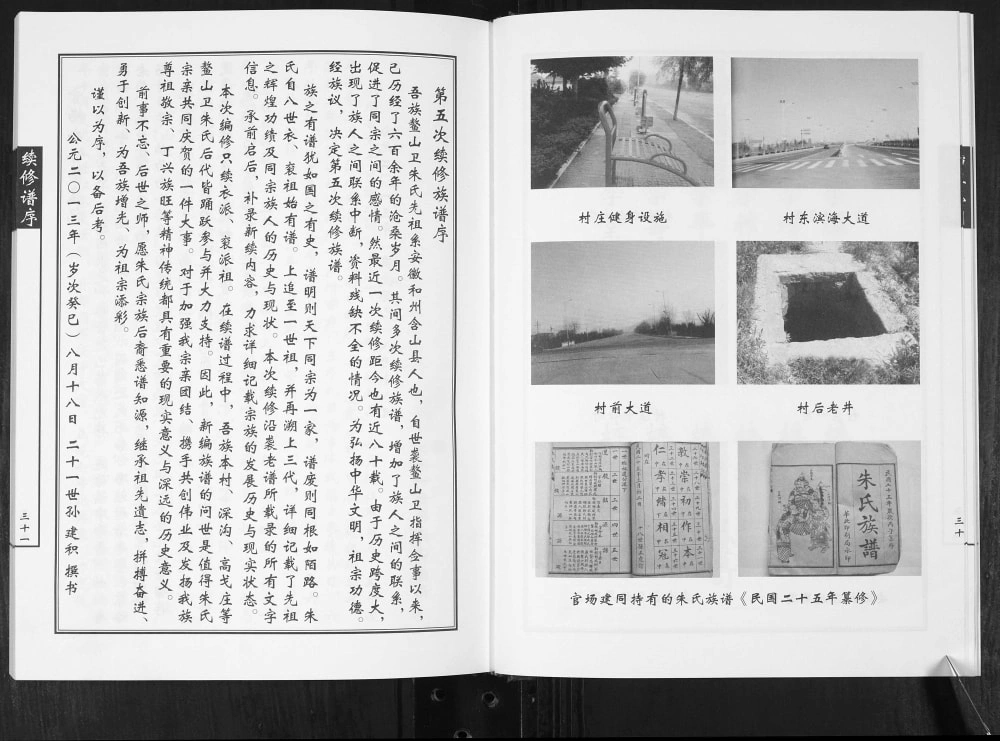 村庄健身设施
村东滨海大道
村前大道
村后老井
民国二十五年岁次丙子孟冬
朱氏族譜
华北印刷局承印
敦崇初作本
仁孝緒相冠
官场建同持有的朱氏族谱《民国二十五年纂修》
三十
第五次续修族谱序
吾族鳌山卫朱氏先祖系安徽和州含山县人也，自世袭鳌山卫指挥佥事以来，
己历经了六百余年的沧桑岁月。其间多次续修族谱，增加了族人之间的联系，
促进了同宗之间的感情。然最近一次续修距今也有近八十载。由于历史跨度大，
出现了族人之间联系中断，资料残缺不全的情况。为弘扬中华文明，祖宗功德。
经族议，决定第五次续修族谱。
族之有谱犹如国之有史，谱明则天下同宗为一家，谱废则同根如陌路。朱
氏自八世衣、衮祖始有谱。上追至一世祖，并再溯上三代，详细记载了先祖
之辉煌功绩及同宗族人的历史与现状。本次续修沿袭老谱所载录的所有文字
信息。承前启后，补录新续内容，力求详细记载宗族的发展历史与现实状态。
本次编修只续衣派、衮派祖。在续谱过程中，吾族本村、深沟、高戈庄等
鳌山卫朱氏后代皆踊跃参与并大力支持。因此，新编族谱的问世是值得朱氏
宗亲共同庆贺的一件大事。对于加强我宗亲团结，携手共创伟业及发扬我族
尊祖敬宗、丁兴族旺等精神传统都具有重要的现实意义与深远的历史意义。
前事不忘、后世之师，愿朱氏宗族后裔悉谱知源，继承祖先遗志，拼搏奋进、
勇于创新、为吾族增光、为祖宗添彩。
谨以为序，以备后考。
公元二〇一三年（岁次癸巳）八月十八日 二十一世孙 建积 撰书
续修谱序
三十一